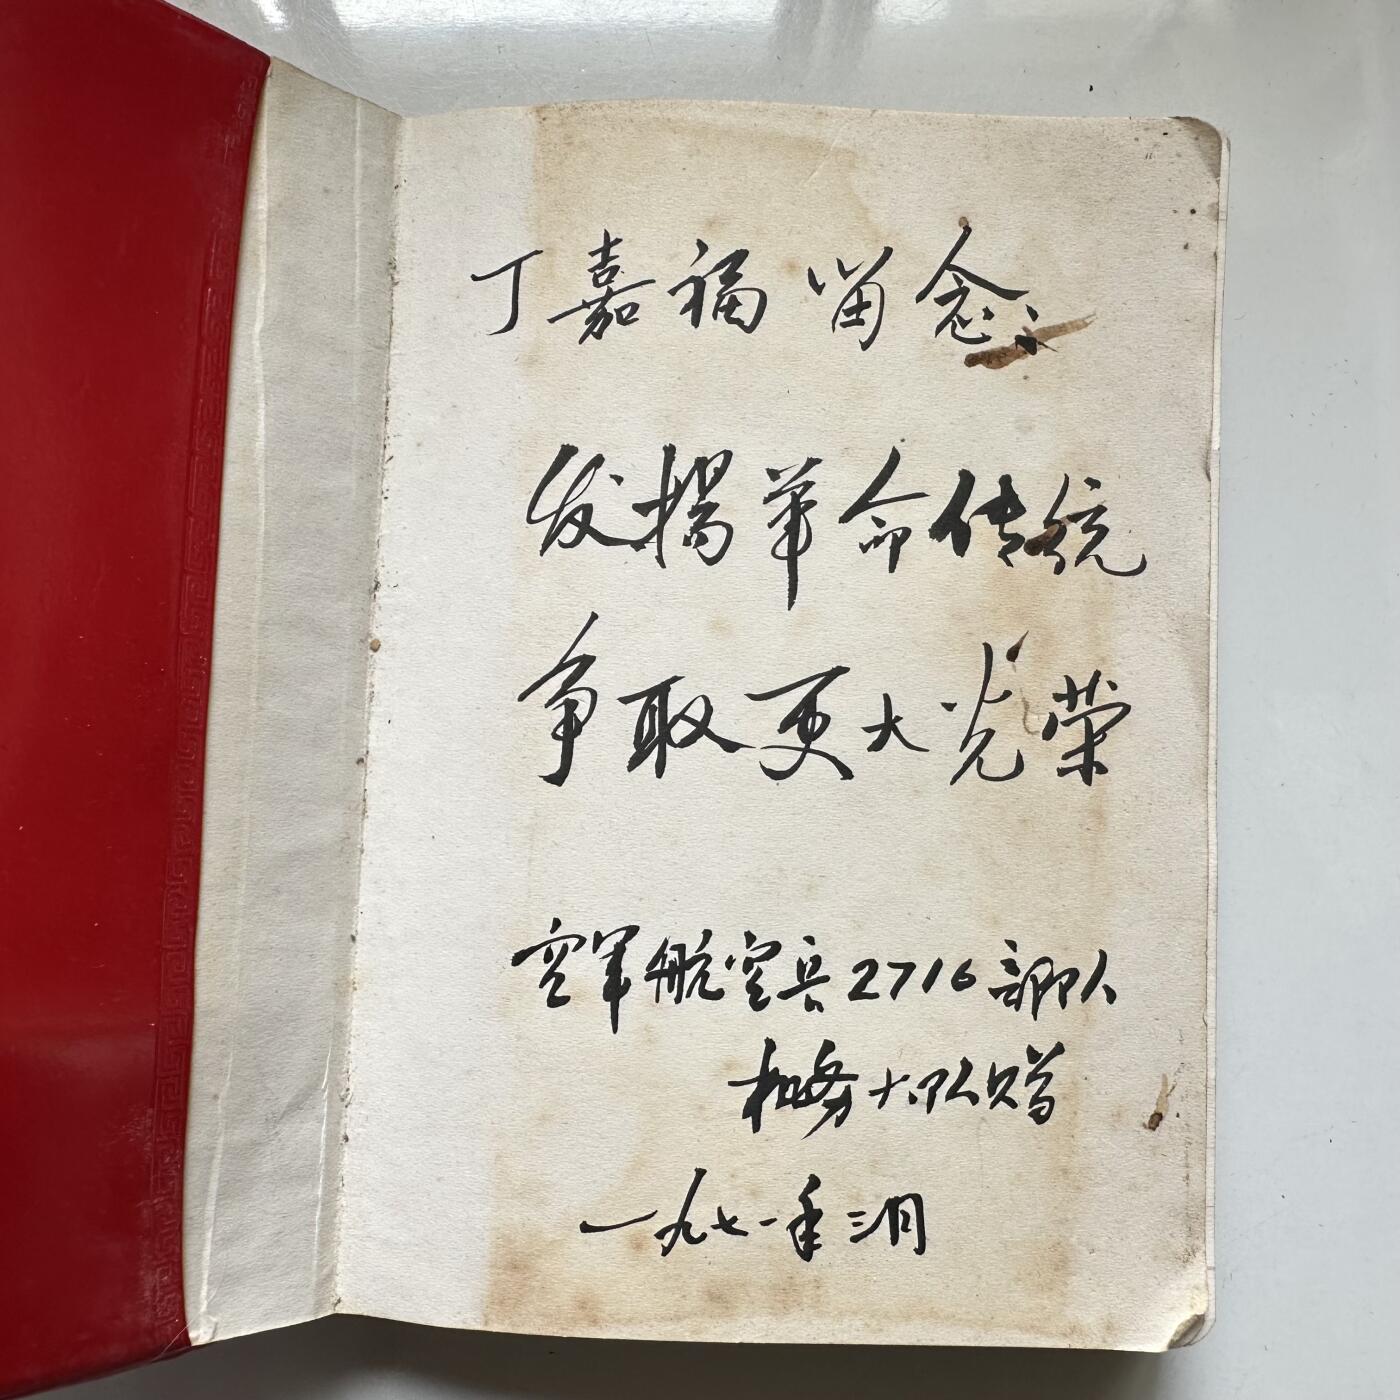 丁嘉福留念：
发扬革命传统
争取更大光荣
空军航空兵2716部队
机务大队赠
一九七一年三月